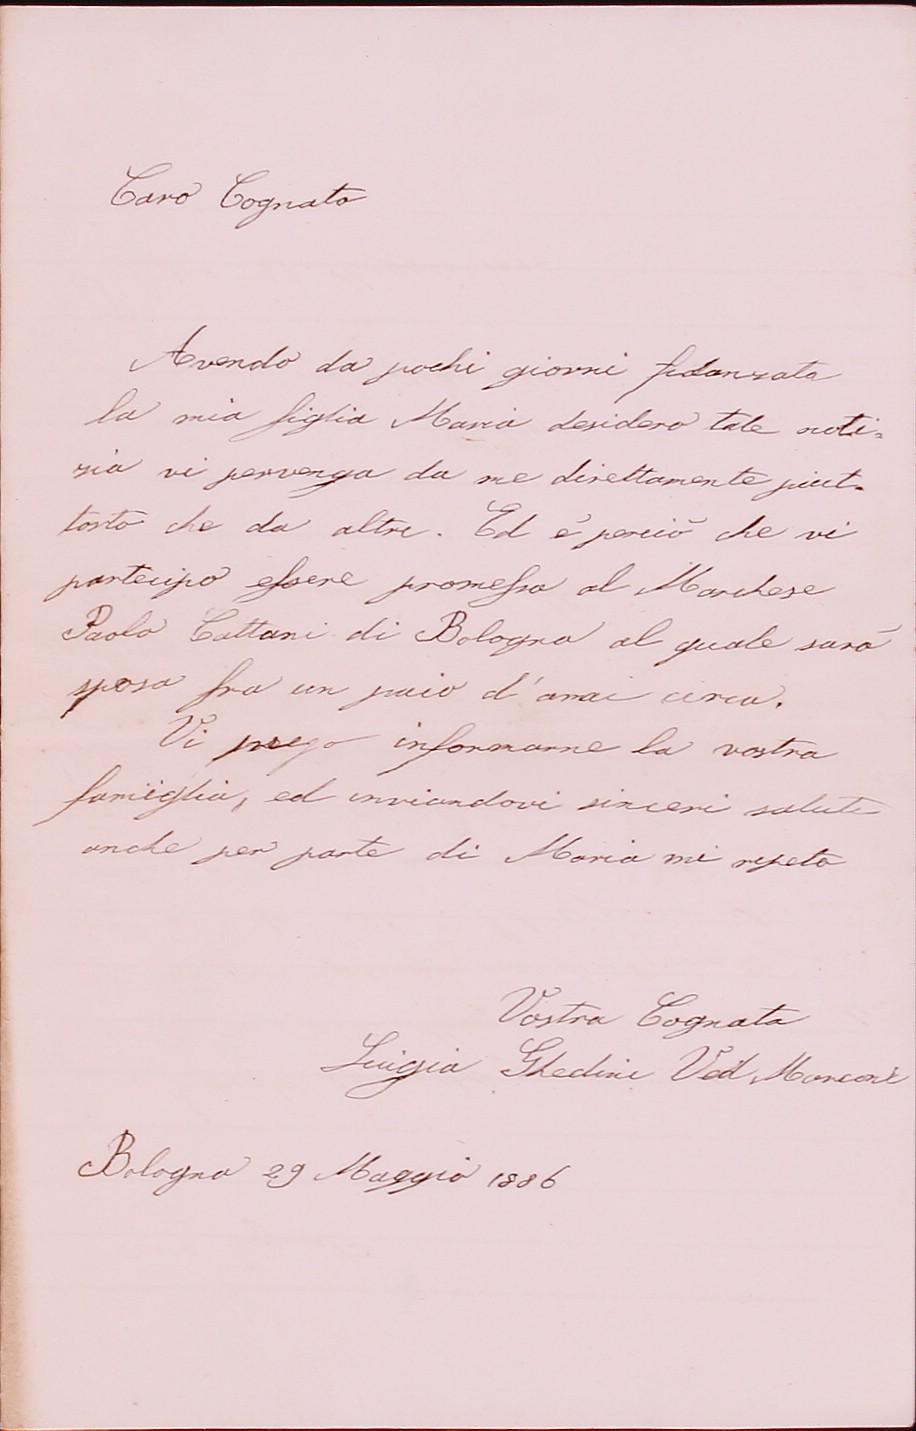 Caro Cognato
Avendo da pochi giorni fidanzata
la mia figlia Maria desidero tale noti=
zia vi pervenga da me direttamente piut-
tosto che da altri. Ed è perciò che vi
partecipo essere promessa al Marchese
Paolo Cattani di Bologna al quale sarà
sposa fra un paio d'anni circa.
Vi prego informarne la vostra
famiglia, ed inviandovi sinceri saluti
anche per parte di Maria mi ripeto
Vostra Cognata
Luigia Ghedini Ved. Marconi
Bologna 29 Maggio 1886